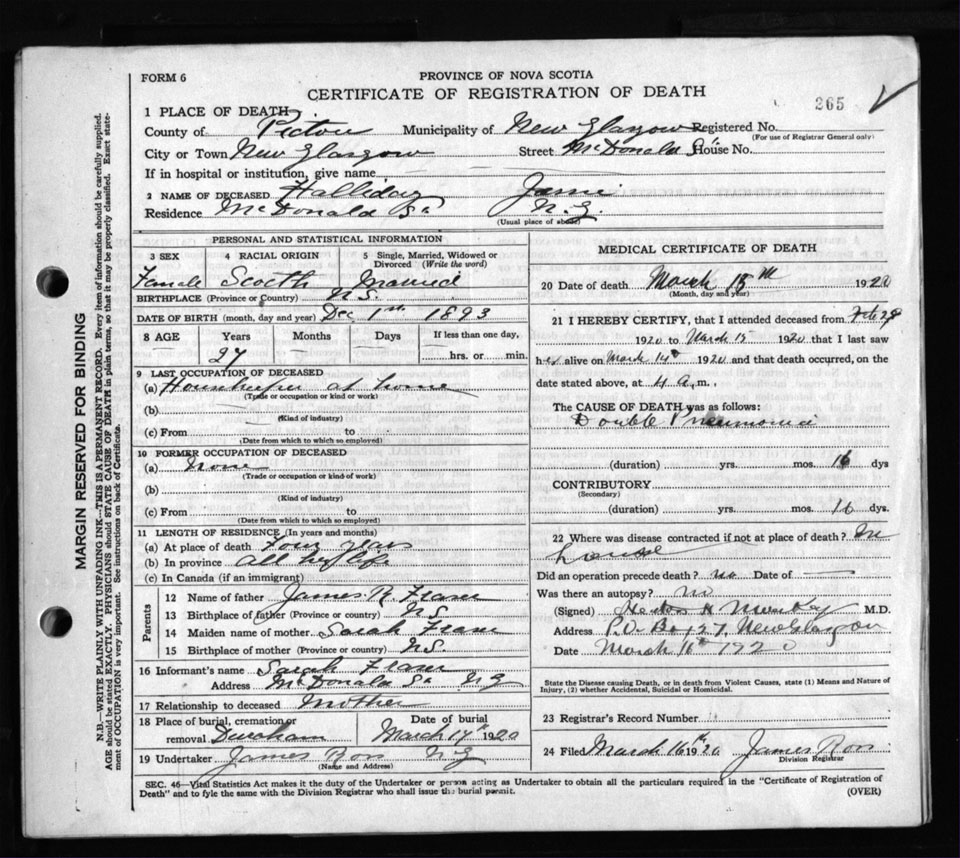 FORM 6
PROVINCE OF NOVA SCOTIA
CERTIFICATE OF REGISTRATION OF DEATH
265
1 PLACE OF DEATH
County of Pictou Municipality of New Glasgow Registered No.
(For use of Registrar General only)
City or Town New Glasgow Street McDonald St. House No.
If in hospital or institution, give name
2 NAME OF DECEASED Halliday
Residence McDonald St. N.G.
(Usual place of abode)
PERSONAL AND STATISTICAL INFORMATION
3 SEX 4 RACIAL ORIGIN 5 Single, Married, Widowed or Divorced (Write the word)
Female Scotch Married
BIRTHPLACE (Province or Country) N.S.
DATE OF BIRTH (month, day and year) Dec 1st 1893
8 AGE Years Months Days If less than one day,
27 — — hrs. or min.
9 LAST OCCUPATION OF DECEASED
(a) Housekeeper at home
(Trade or occupation or kind of work)
(b)
(Kind of industry)
(c) From to
(Date from which to which so employed)
10 FORMER OCCUPATION OF DECEASED
(a) None
(Trade or occupation or kind of work)
(b)
(Kind of industry)
(c) From to
(Date from which to which so employed)
11 LENGTH OF RESIDENCE (In years and months)
(a) At place of death Four years
(b) In province All her life
(c) In Canada (if an immigrant)
Parents
12 Name of father James R. Fraser
13 Birthplace of father (Province or country) N.S.
14 Maiden name of mother Sarah Fraser
15 Birthplace of mother (Province or country) N.S.
16 Informant's name Sarah Fraser
Address McDonald St. N.G.
17 Relationship to deceased Mother
18 Place of burial, cremation or removal Durham Date of burial March 17th 1920
19 Undertaker James Ross N.G.
(Name and Address)
MEDICAL CERTIFICATE OF DEATH
20 Date of death March 15th 1920
(Month, day and year)
21 I HEREBY CERTIFY, that I attended deceased from Feb 28
1920 to March 15 1920 that I last saw
her alive on March 14th 1920 and that death occurred, on the
date stated above, at 4 a.m.
The CAUSE OF DEATH was as follows:
Double Pneumonia
(duration) yrs. mos. 16 dys
CONTRIBUTORY
(Secondary)
(duration) yrs. mos. 16 dys
22 Where was disease contracted if not at place of death?
Did an operation precede death? No Date of —
Was there an autopsy? No
(Signed) M.D.
Address P.O. Box 127, New Glasgow
Date March 16th 1920
State the Disease causing Death, or in death from Violent Causes, state (1) Means and Nature of
Injury, (2) whether Accidental, Suicidal or Homicidal.
23 Registrar's Record Number
24 Filed March 16th 1920 James Ross
Division Registrar
SEC. 46—Vital Statistics Act makes it the duty of the Undertaker or person acting as Undertaker to obtain all the particulars required in the "Certificate of Registration of
Death" and to fyle the same with the Division Registrar who shall issue the burial permit. (OVER)
MARGIN RESERVED FOR BINDING
N.B.—WRITE PLAINLY WITH UNFADING INK—THIS IS A PERMANENT RECORD. Every item of information should be carefully supplied.
AGE should be stated EXACTLY. PHYSICIANS should STATE CAUSE OF DEATH in plain terms, so that it may be properly classified. Exact state-
ment of OCCUPATION is very important. See instructions on back of Certificate.